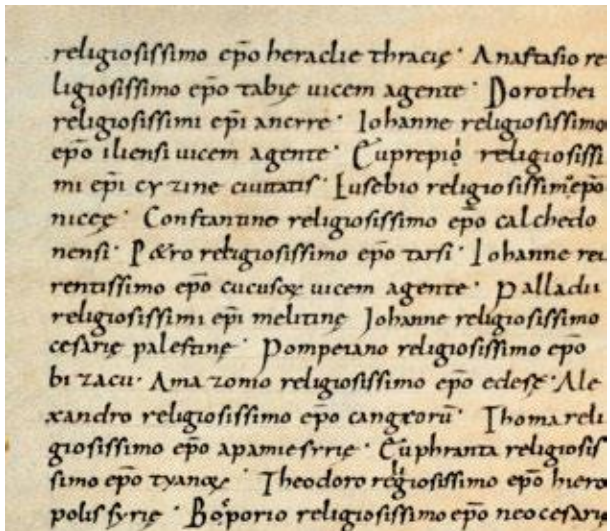 religiosissimo ep̄o heraclie thracię · Anastasio re
ligiosissimo ep̄o tabię uicem agente · Dorothei
religiosissimi ep̄i ancrre · Iohanne religiosissimo
ep̄o iliensi uicem agente · Euprepio religiosissi
mi ep̄i cyzine ciuitatis · Eusebio religiosissimo ep̄o
nicęę · Constantino religiosissimo ep̄o calchedo
nensi · P&ro religiosissimo ep̄o tarsi · Iohanne reu
rentissimo ep̄o uicem agente · Palladii
religiosissimi ep̄i melitinę Johanne religiosissimo
cesarię palestinę · Pompeiano religiosissimo ep̄o
bizacii · Amazonio religiosissimo ep̄o edesę · Ale
xandro religiosissimo ep̄o cangrorū · Thoma reli
giosissimo ep̄o apamie syrię · Euphranta religiosis
simo ep̄o · Theodoro religiosissimo ep̄o hiero
polis syrię · Bosporio religiosissimo ep̄o neocesarię